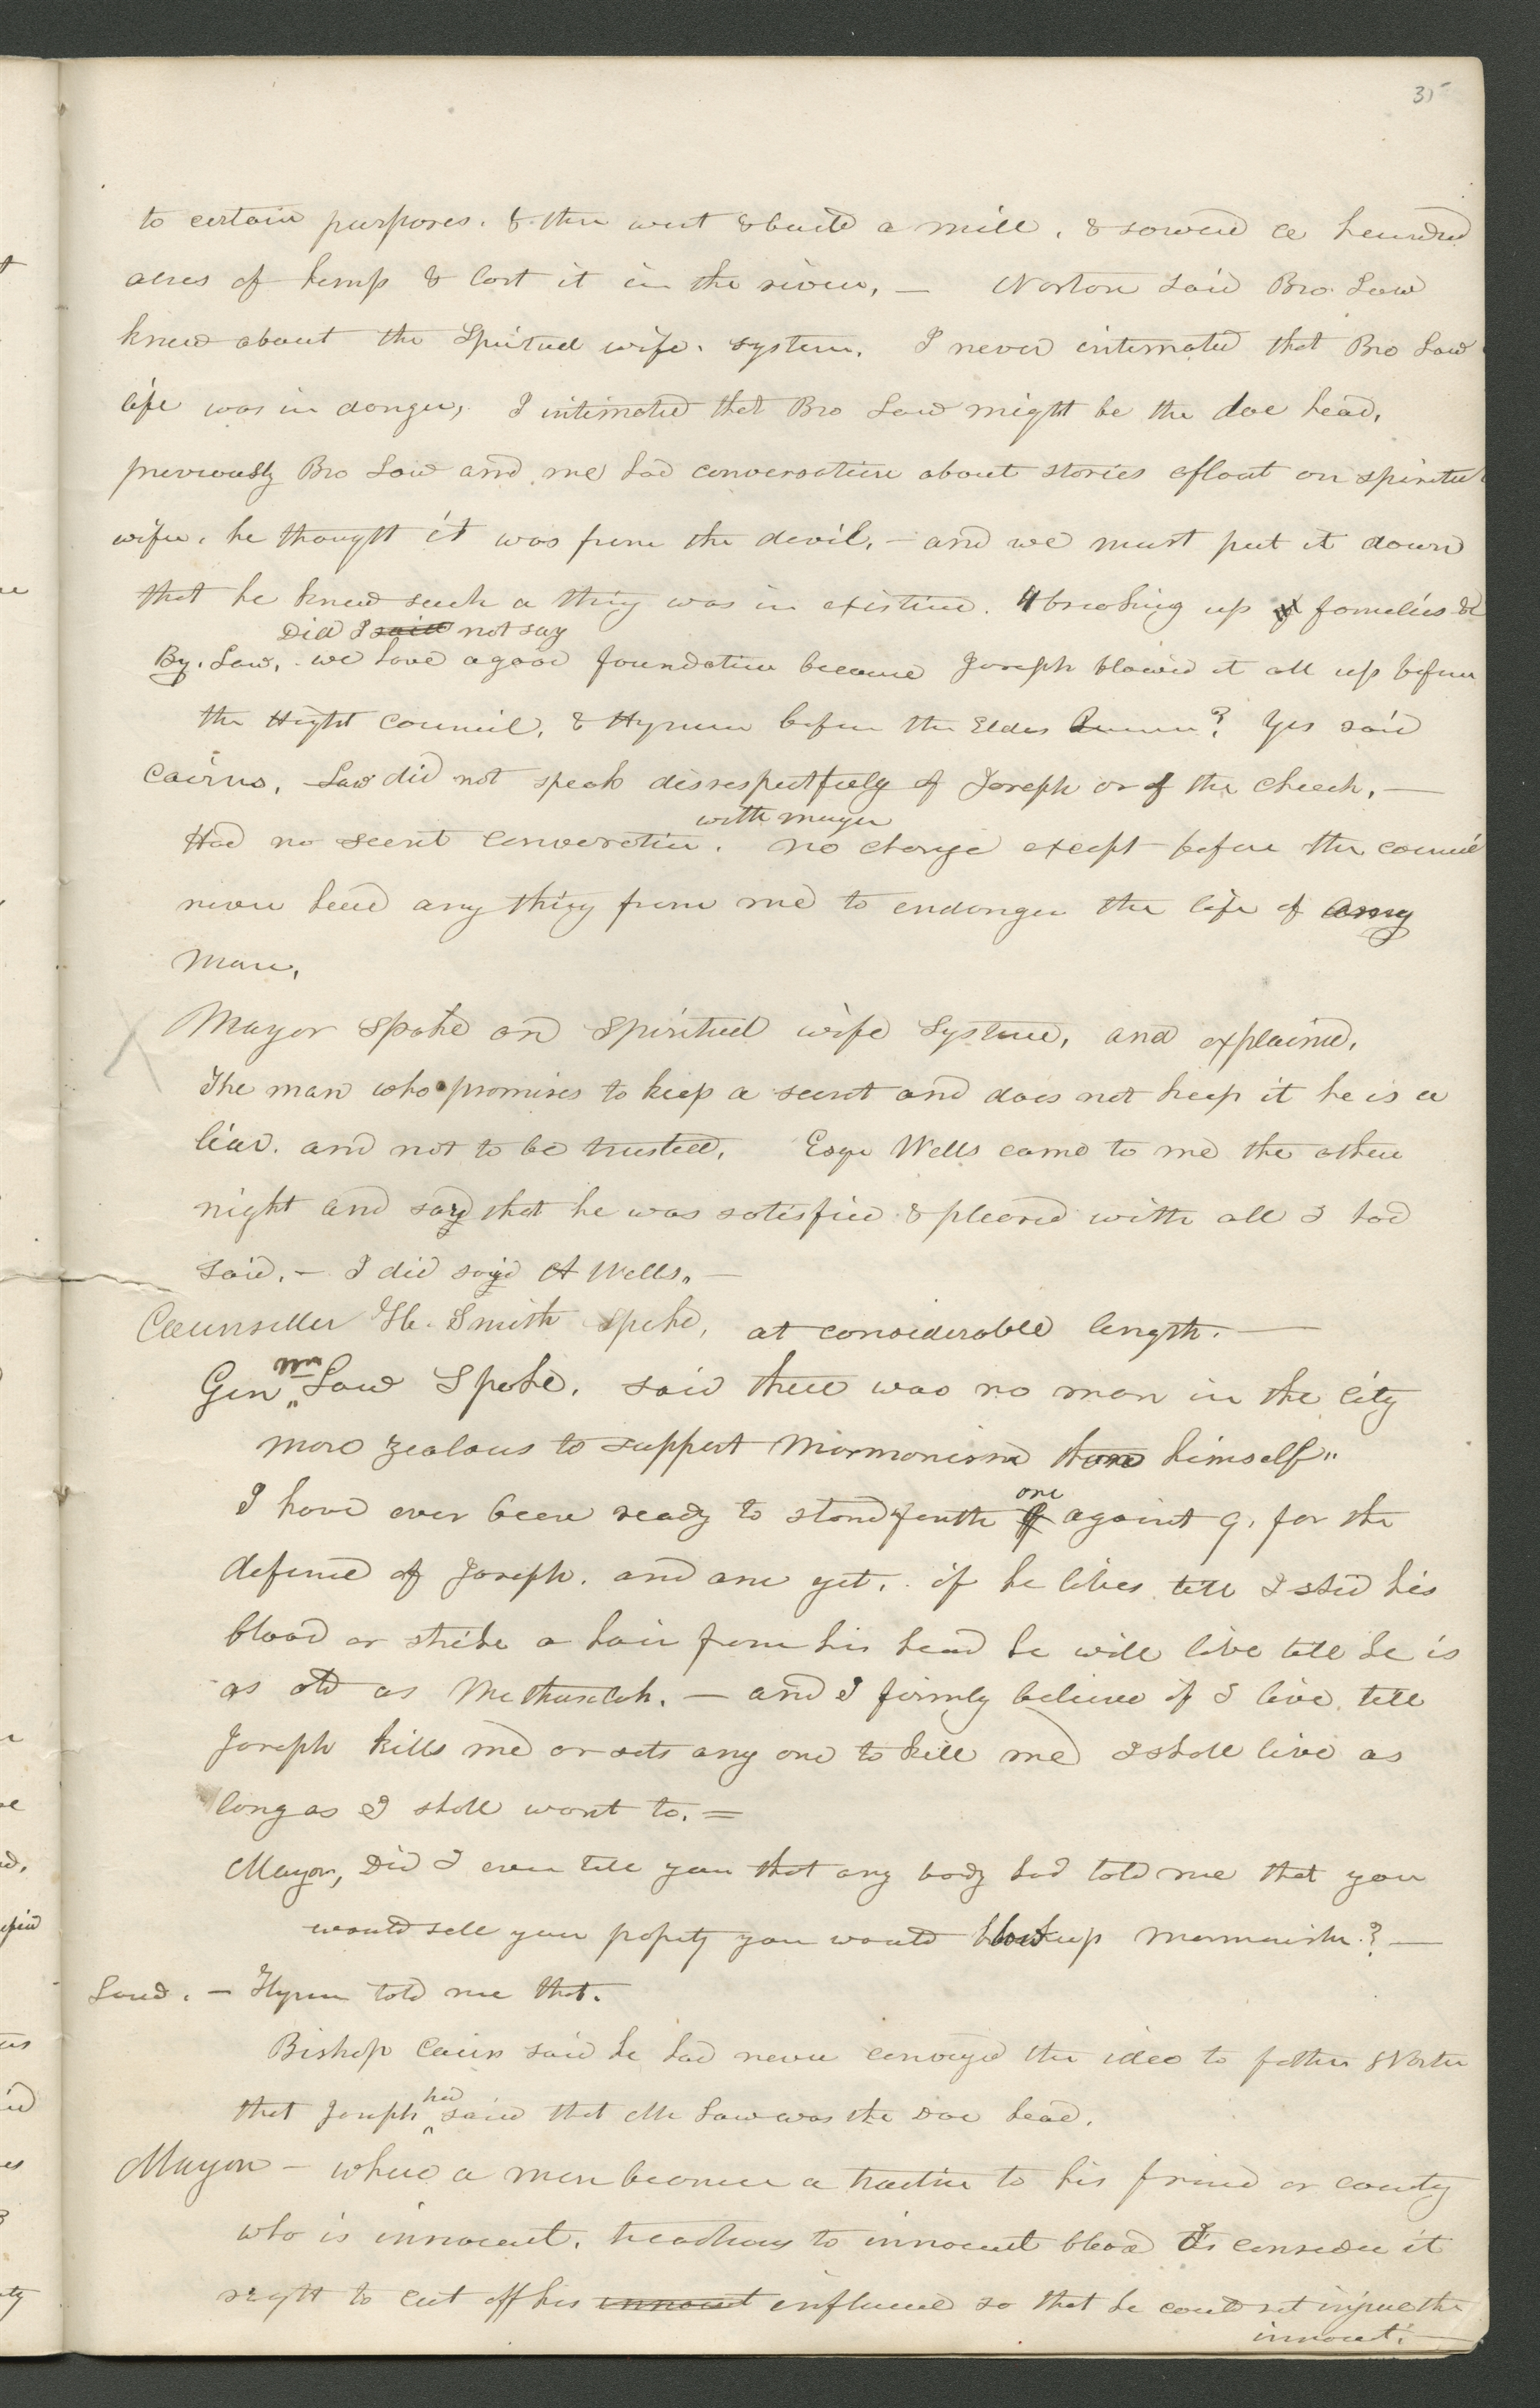 35
to certain purposes. & then went & build a mill, & sowed a hundred
acres of hemp & lost it in the river, — Norton said Bro. Law
knew about the Spiritual wife. system. I never intimated that Bro Law
life was in danger, I intimated that Bro Law might be the doe head,
previously Bro Law and me had conversation about stories afloat on spiritual
wifes. he thought it was from the devil. — and we must put it down
that he knew such a thing was in existence. & breaking up of families &c
Did I said not say
By. Law, we have a good foundation because Joseph blowed it all up before
the Hight Council, & Hyrum before the Elders Quorum? Yes said
Cairns, Law did not speak disrespectfully of Joseph or of the church. —
with mayor
Had no secret conversation. no charge except before the council
never heard any thing from me to endanger the life of any
man,
Mayor Spoke on Spiritual wife System, and explained,
The man who promises to keep a secret and does not keep it he is a
liar. and not to be trusted. Esqr Wells came to me the other
night and say that he was satisfied & pleased with all I had
said. — I did said A Wells. —
Counseller H. Smith spoke, at considerable length. —
Wm
Gen Law Spoke. said there was no man in the city
more zealous to support Mormonism than himself"
one
I have ever been ready to stand forth against 9. for the
defence of Joseph. and am yet. if he lives till I shed his
blood or strike a hair from his head he will live till he is
as old as Methuselah. — and I firmly believe if I live till
Joseph kills me or sets any one to kill me I shall live as
long as I shall want to. =
Mayor, Did I ever tell you that any body had told me that you
would sell your property you would up Mormonism? —
Law. — Hyrum told me that.
Bishop Cairn said he had never conveyed the idea to father Norton
had
that Joseph said that Mr Law was the Doe head.
Mayor — where a man becomes a traitor to his friend or country
who is innocent. treacherous to innocent blood I consider it
right to cut off his innocent influence so that he could not injure the
innocent. —